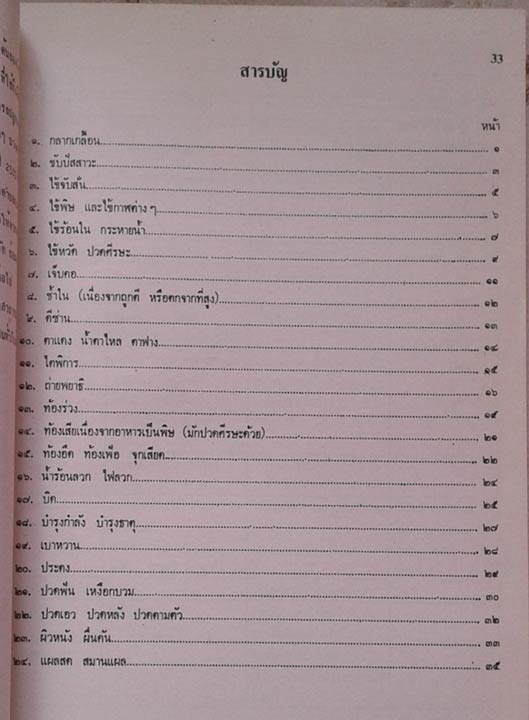 33
สารบัญ
หน้า
๑. กลากเกลื้อน ๑
๒. ขับปัสสาวะ ๓
๓. ไข้จับสั่น ๕
๔. ไข้พิษ และไข้กาฬต่างๆ ๖
๕. ไข้ร้อนใน กระหายน้ำ ๗
๖. ไข้หวัด ปวดศีรษะ ๙
๗. เจ็บคอ ๑๑
๘. ช้ำใน (เนื่องจากถูกตี หรือตกจากที่สูง) ๑๒
๙. ดีซ่าน ๑๓
๑๐. ตาแดง น้ำตาไหล ตาฟาง ๑๔
๑๑. ไตพิการ ๑๕
๑๒. ถ่ายพยาธิ ๑๖
๑๓. ท้องร่วง ๑๙
๑๔. ท้องเสียเนื่องจากอาหารเป็นพิษ (มักปวดศีรษะด้วย) ๒๑
๑๕. ท้องอืด ท้องเฟ้อ จุกเสียด ๒๒
๑๖. น้ำร้อนลวก ไฟลวก ๒๔
๑๗. บิด ๒๕
๑๘. บำรุงกำลัง บำรุงธาตุ ๒๗
๑๙. เบาหวาน ๒๘
๒๐. ประดง ๒๙
๒๑. ปวดฟัน เหงือกบวม ๓๐
๒๒. ปวดเอว ปวดหลัง ปวดตามตัว ๓๒
๒๓. ผิวหนัง ผื่นคัน ๓๓
๒๔. แผลสด สมานแผล ๓๕